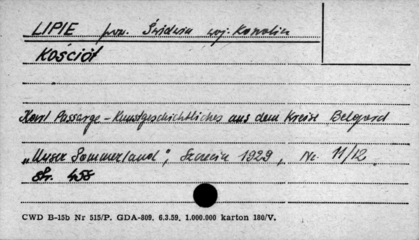 LIPIE pow. Świdwin woj. Koszalin
KOŚCIÓŁ
Karl Passarge - Kunstgeschichtliches aus dem Kreise Belgard
„Unser Pommerland", Szczecin 1929, Nr. 11/12
Str. 455
CWD B-15b Nr 515/P. GDA-809. 6.3.59. 1.000.000 karton 180/V.